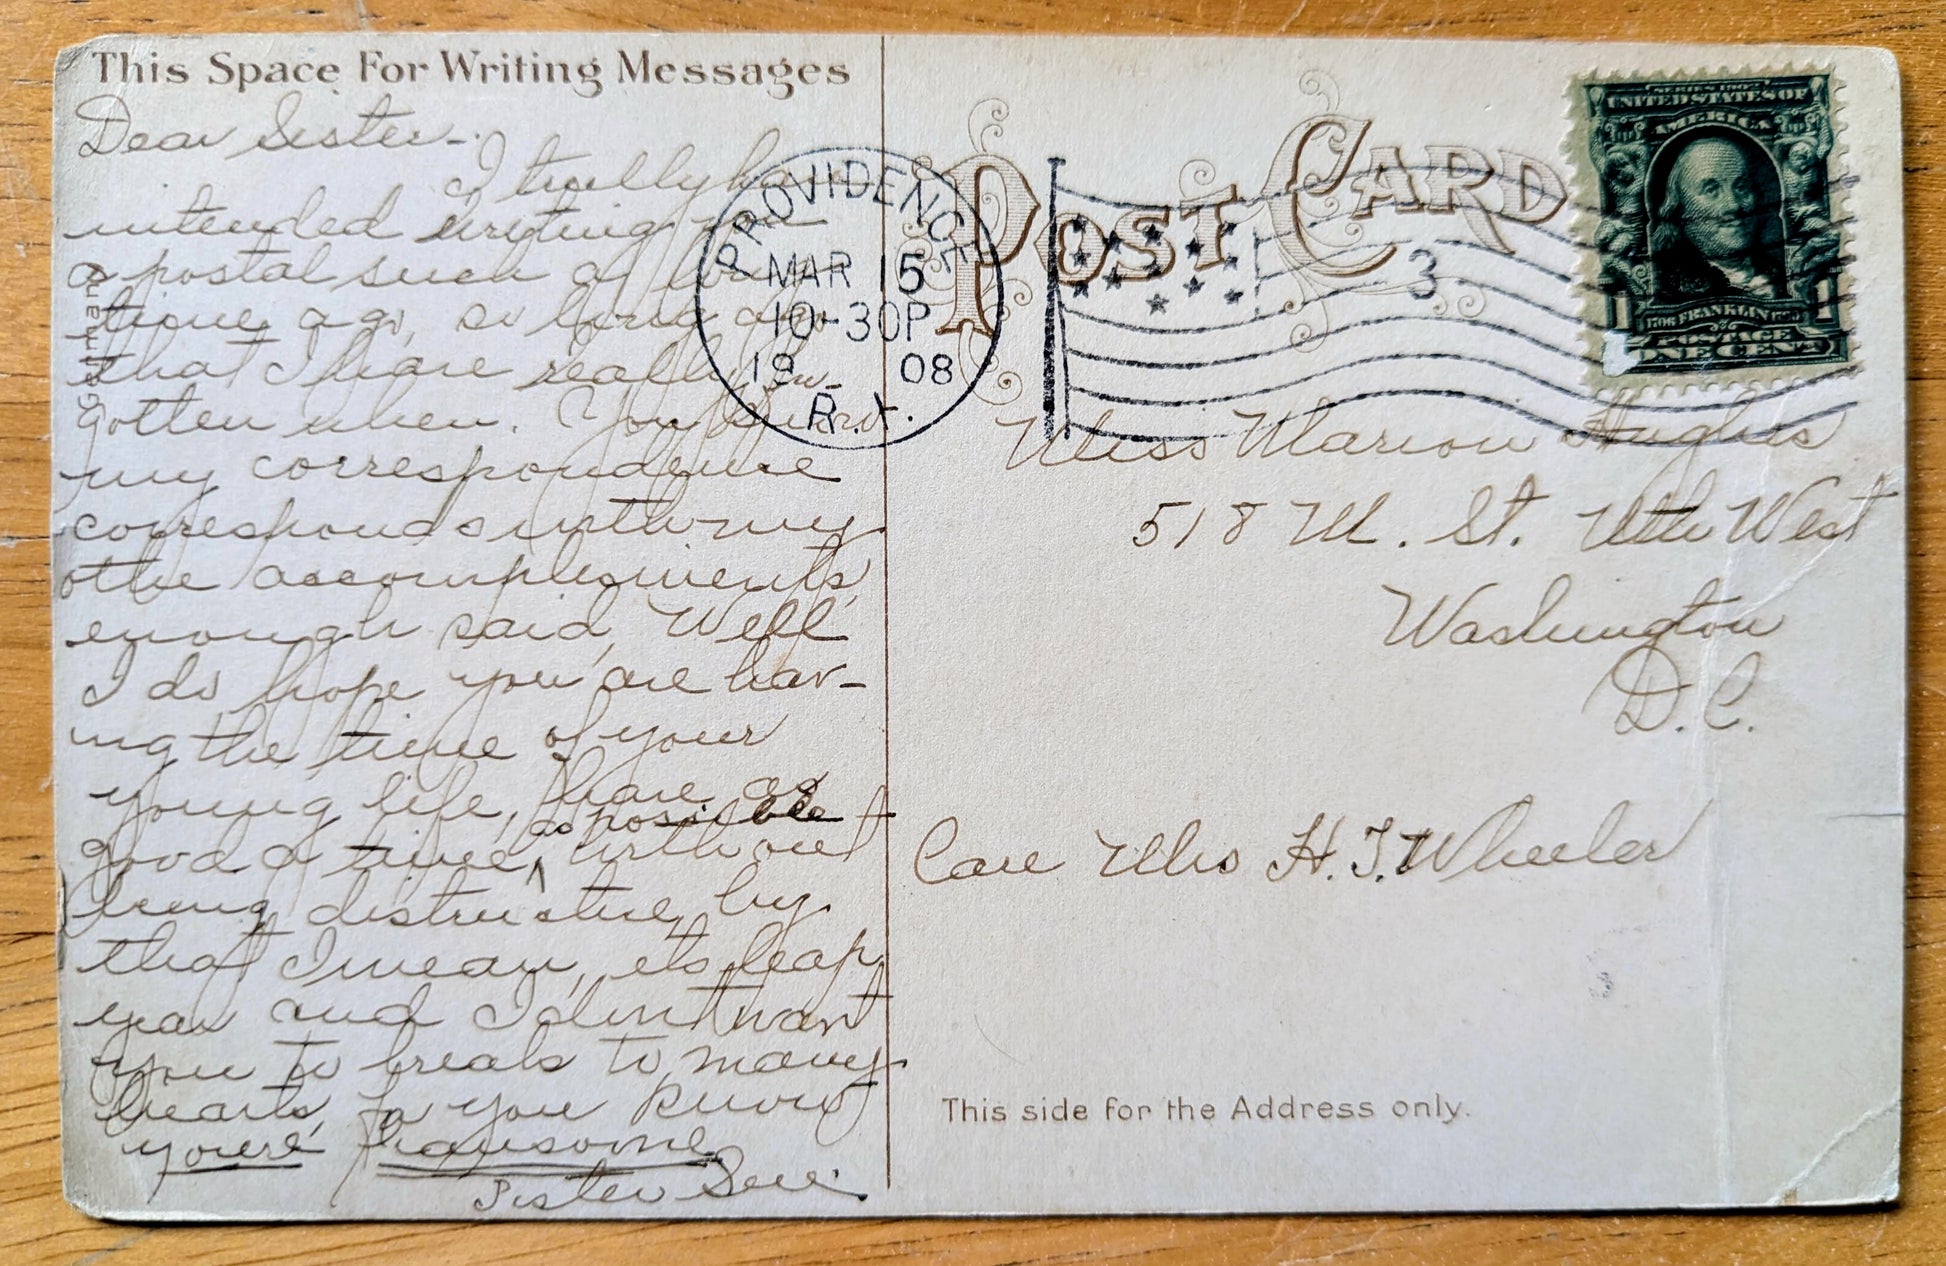 This Space For Writing Messages
Dear Sister-.
I trully have
intended writing you
a postal such a long
time ago, so long ago
that I have really for-
gotten when. You know
my correspondence
corresponds with my
othe accomplisments,
enough said, Well
I do hope you are hav-
ing the time of your
young life, have as
good a time, as possible without
being distructive, by
that I mean, its leap
year and I dont want
you to break to many
hearts, for you know
youre hansome
Sister Sue.
Germany
PROVIDENCE
MAR 15
10-30P
19 08
R.I.
POST CARD
3
SERIES 1902
UNITED STATES OF
AMERICA
1706 FRANKLIN 1790
1 1
POSTAGE
ONE CENT
Miss Marion Hughes
518 M. St. Nth West
Washington
D.C.
Care Mrs H. T. Wheeler
This side for the Address only.